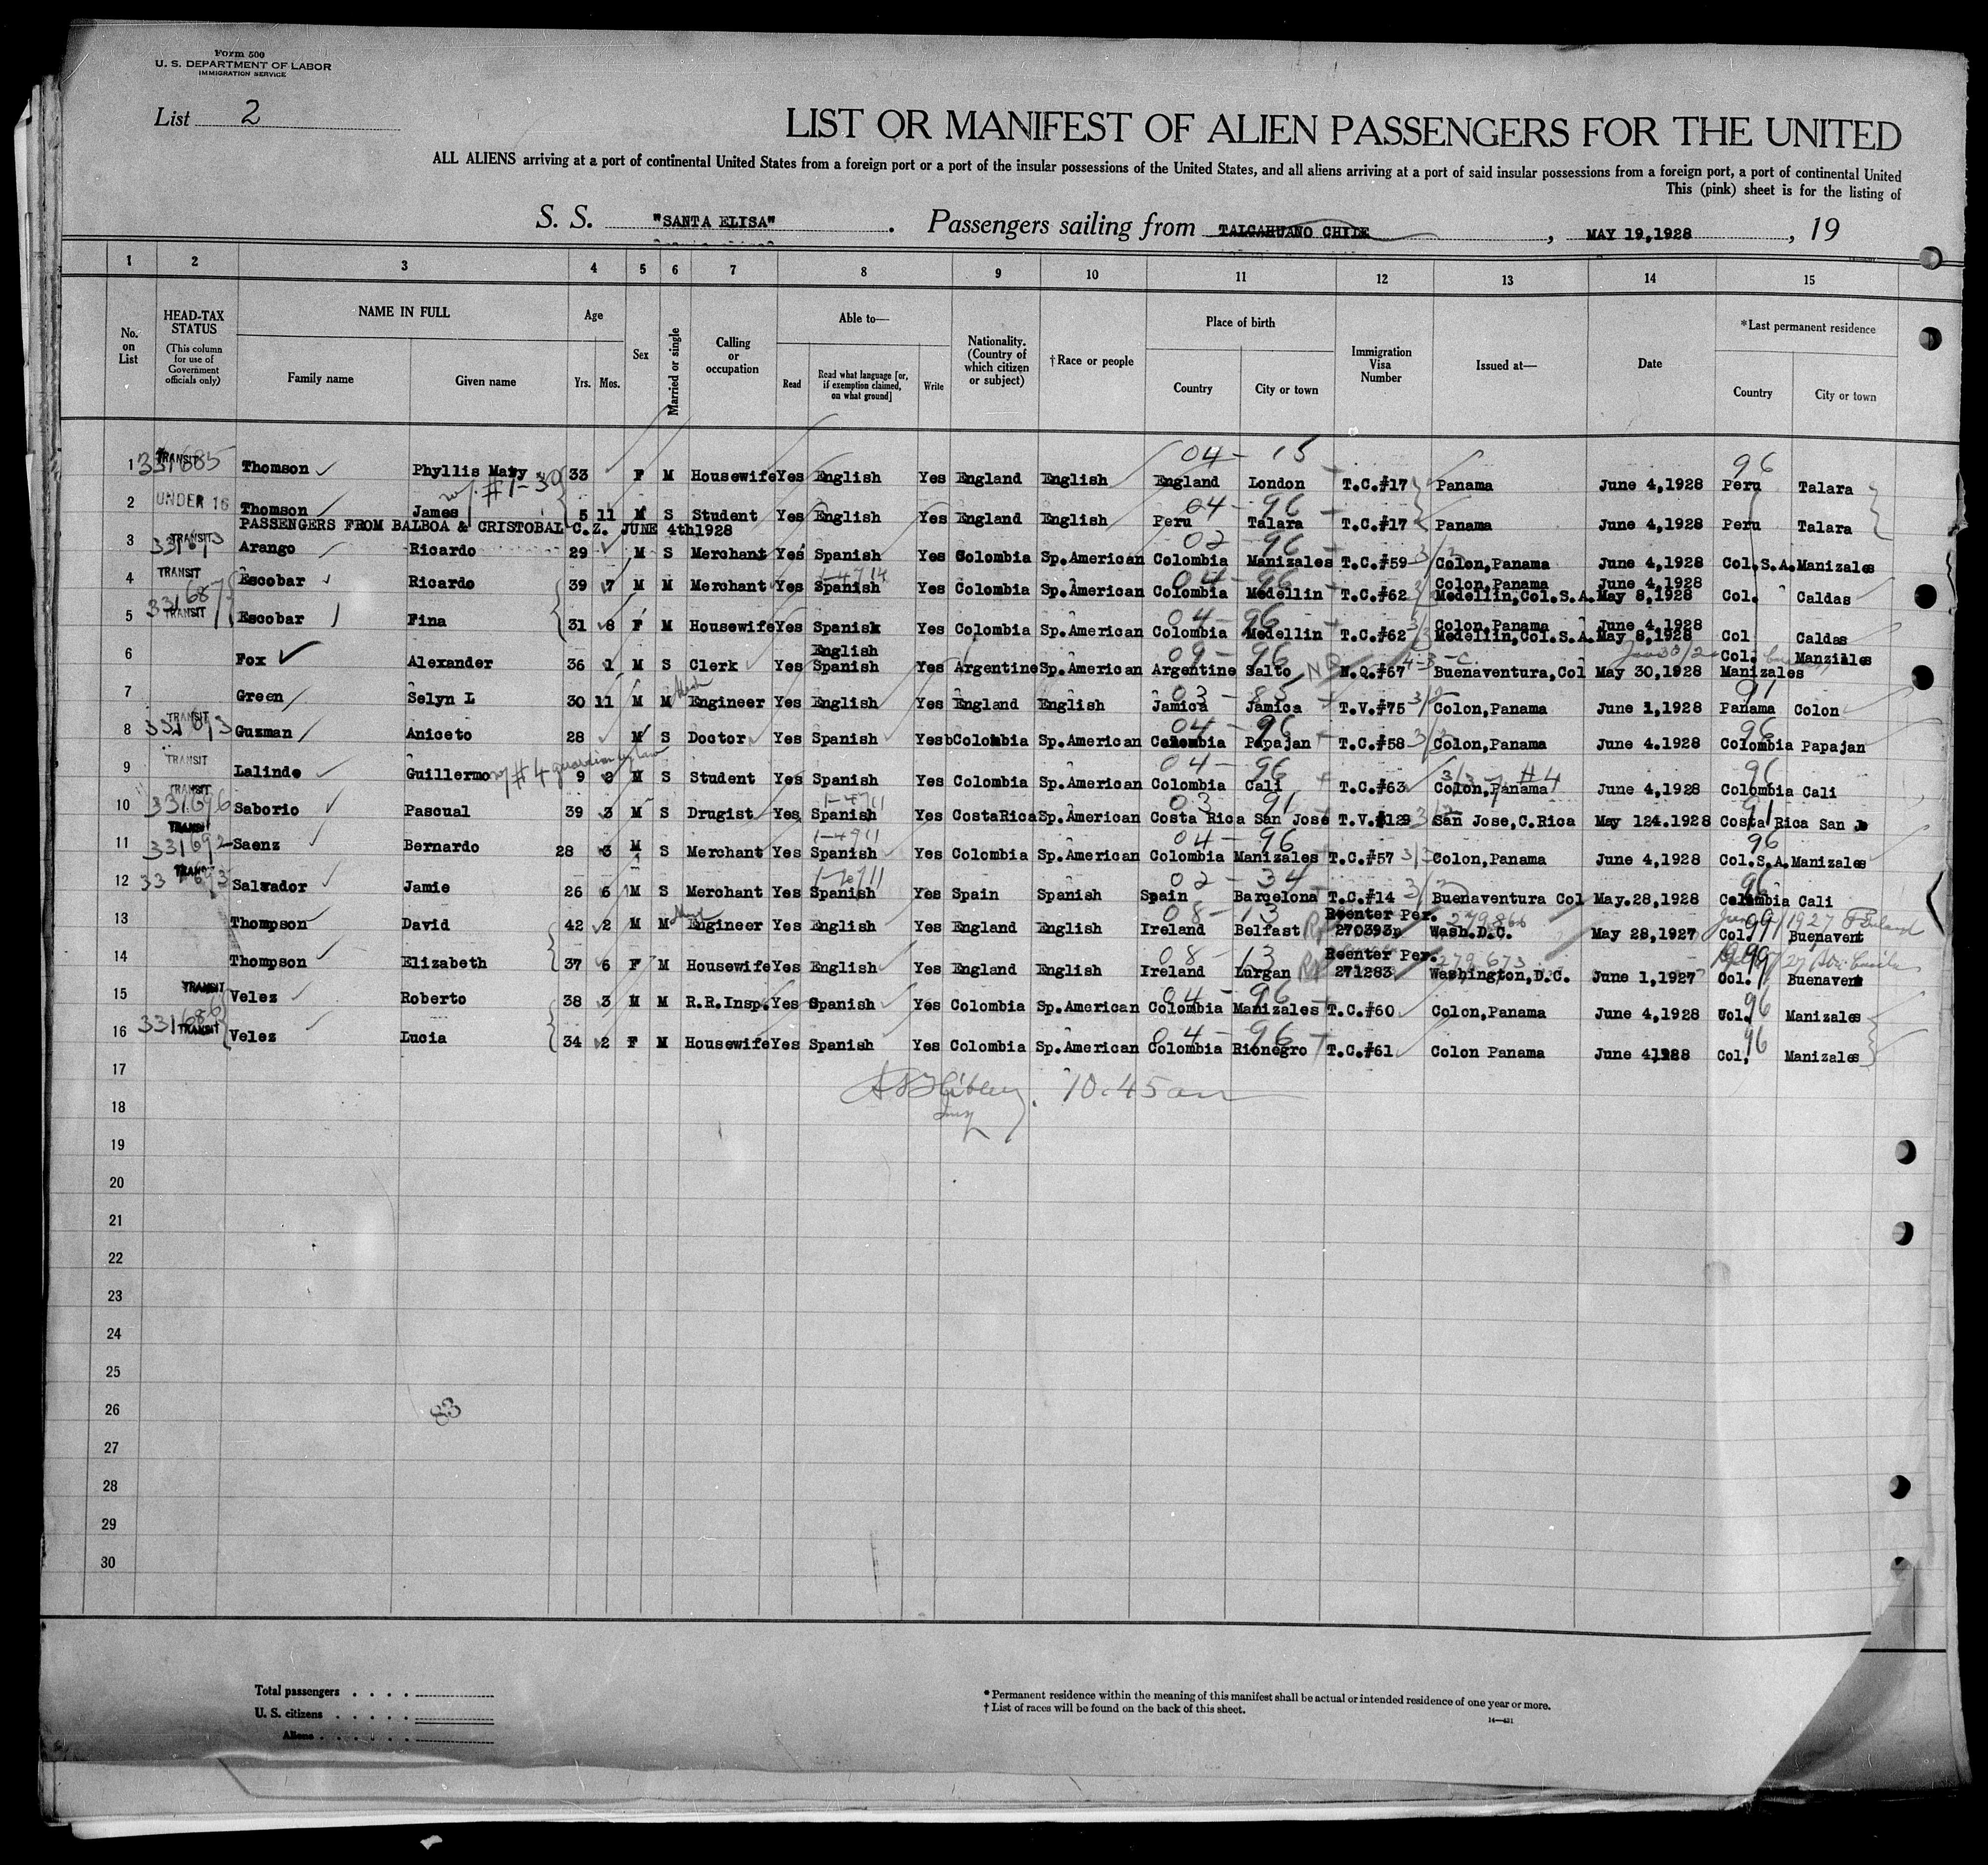 Form 500
U. S. DEPARTMENT OF LABOR
IMMIGRATION SERVICE
List 2
LIST OR MANIFEST OF ALIEN PASSENGERS FOR THE UNITED
ALL ALIENS arriving at a port of continental United States from a foreign port or a port of the insular possessions of the United States, and all aliens arriving at a port of said insular possessions from a foreign port, a port of continental United
This (pink) sheet is for the listing of
S. S. "SANTA ELISA" . Passengers sailing from TALCAHUANO CHILE , MAY 19,1928 , 19
1 2 3 4 5 6 7 8 9 10 11 12 13 14 15
No. on List
HEAD-TAX STATUS
(This column for use of Government officials only)
NAME IN FULL
Family name Given name
Age
Yrs. Mos.
Sex
Married or single
Calling or occupation
Able to—
Read Read what language [or, if exemption claimed, on what ground] Write
Nationality. (Country of which citizen or subject)
†Race or people
Place of birth
Country City or town
Immigration Visa Number
Issued at—
Date
*Last permanent residence
Country City or town
04 - 15 96
1 TRANSIT 331685 Thomson Phyllis Mary 33 F M Housewife Yes English Yes England English England London T.C.#17 Panama June 4,1928 Peru Talara
w/ #1-30 04 - 96
2 UNDER 16 Thomson James 5 11 M S Student Yes English Yes England English Peru Talara T.C.#17 Panama June 4,1928 Peru Talara
PASSENGERS FROM BALBOA & CRISTOBAL C.Z. JUNE 4th1928
02 - 96
3 TRANSIT Arango Ricardo 29 M S Merchant Yes Spanish Yes Colombia Sp.American Colombia Manizales T.C.#59 Colon,Panama June 4,1928 Col.S.A. Manizales
04 - 96 Colon,Panama June 4,1928
4 TRANSIT 331687 Escobar Ricardo 39 7 M M Merchant Yes Spanish Yes Colombia Sp.American Colombia Medellin T.C.#62 Medellin,Col.S.A. May 8,1928 Col. Caldas
04 - 96 Colon,Panama June 4,1928
5 TRANSIT Escobar Fina 31 8 F M Housewife Yes Spanisk Yes Colombia Sp.American Colombia Medellin T.C.#62 Medellin,Col.S.A. May 8,1928 Col Caldas
English 09 - 96 Col. Manziles
6 Fox Alexander 36 1 M S Clerk Yes Spanish Yes Argentine Sp.American Argentine Salto N.Q.#57 Buenaventura,Col May 30,1928 Manizales
03 - 85 91
7 Green Selyn L 30 11 M M Engineer Yes English Yes England English Jamica Jamica T.V.#75 Colon,Panama June 1,1928 Panama Colon
04 - 96 96
8 TRANSIT Guzman Aniceto 28 M S Doctor Yes Spanish Yesb Colombia Sp.American Colombia Papajan T.C.#58 Colon,Panama June 4.1928 Colombia Papajan
w/ #4 guardian by law 04 - 96 #4 96
9 TRANSIT Lalinde Guillermo 9 2 M S Student Yes Spanish Yes Colombia Sp.American Colombia Cali T.C.#63 Colon,Panama June 4,1928 Colombia Cali
1-4711 03 91 91
10 TRANSIT 331696 Saborio Pascual 39 3 M S Drugist Yes Spanish Yes CostaRica Sp.American Costa Rica San Jose T.V.#129 San Jose,C.Rica May 124.1928 Costa Rica San J
1-4911 04 - 96 96
11 TRANSIT 331692 Saenz Bernardo 28 3 M S Merchant Yes Spanish Yes Colombia Sp.American Colombia Manizales T.C.#57 Colon,Panama June 4,1928 Col.S.A. Manizales
02 - 34 96
12 TRANSIT Salvador Jamie 26 6 M S Merchant Yes Spanish Yes Spain Spanish Spain Barcelona T.C.#14 Buenaventura Col May.28,1928 Colombia Cali
08 - 13 Reenter Per. 279866
13 Thompson David 42 2 M M Engineer Yes English Yes England English Ireland Belfast 270393 Wash.D.C. May 28,1927 Col. Buenavent
08 - 13 Reenter Per. 279673
14 Thompson Elizabeth 37 6 F M Housewife Yes English Yes England English Ireland Lurgan 271283 Washington,D.C. June 1,1927 Col. Buenavent
04 - 96 96
15 TRANSIT Velez Roberto 38 3 M M R.R.Insp. Yes Spanish Yes Colombia Sp.American Colombia Manizales T.C.#60 Colon,Panama June 4,1928 Col. Manizales
04 - 96 96
16 331686 TRANSIT Velez Lucia 34 2 F M Housewife Yes Spanish Yes Colombia Sp.American Colombia Rionegro T.C.#61 Colon Panama June 4,1928 Col, Manizales
17
10.45 am
18
19
20
21
22
23
24
25
26
83
27
28
29
30
Total passengers . . . .
U. S. citizens . . . . .
Aliens . . . . . .
* Permanent residence within the meaning of this manifest shall be actual or intended residence of one year or more.
† List of races will be found on the back of this sheet.
14—421